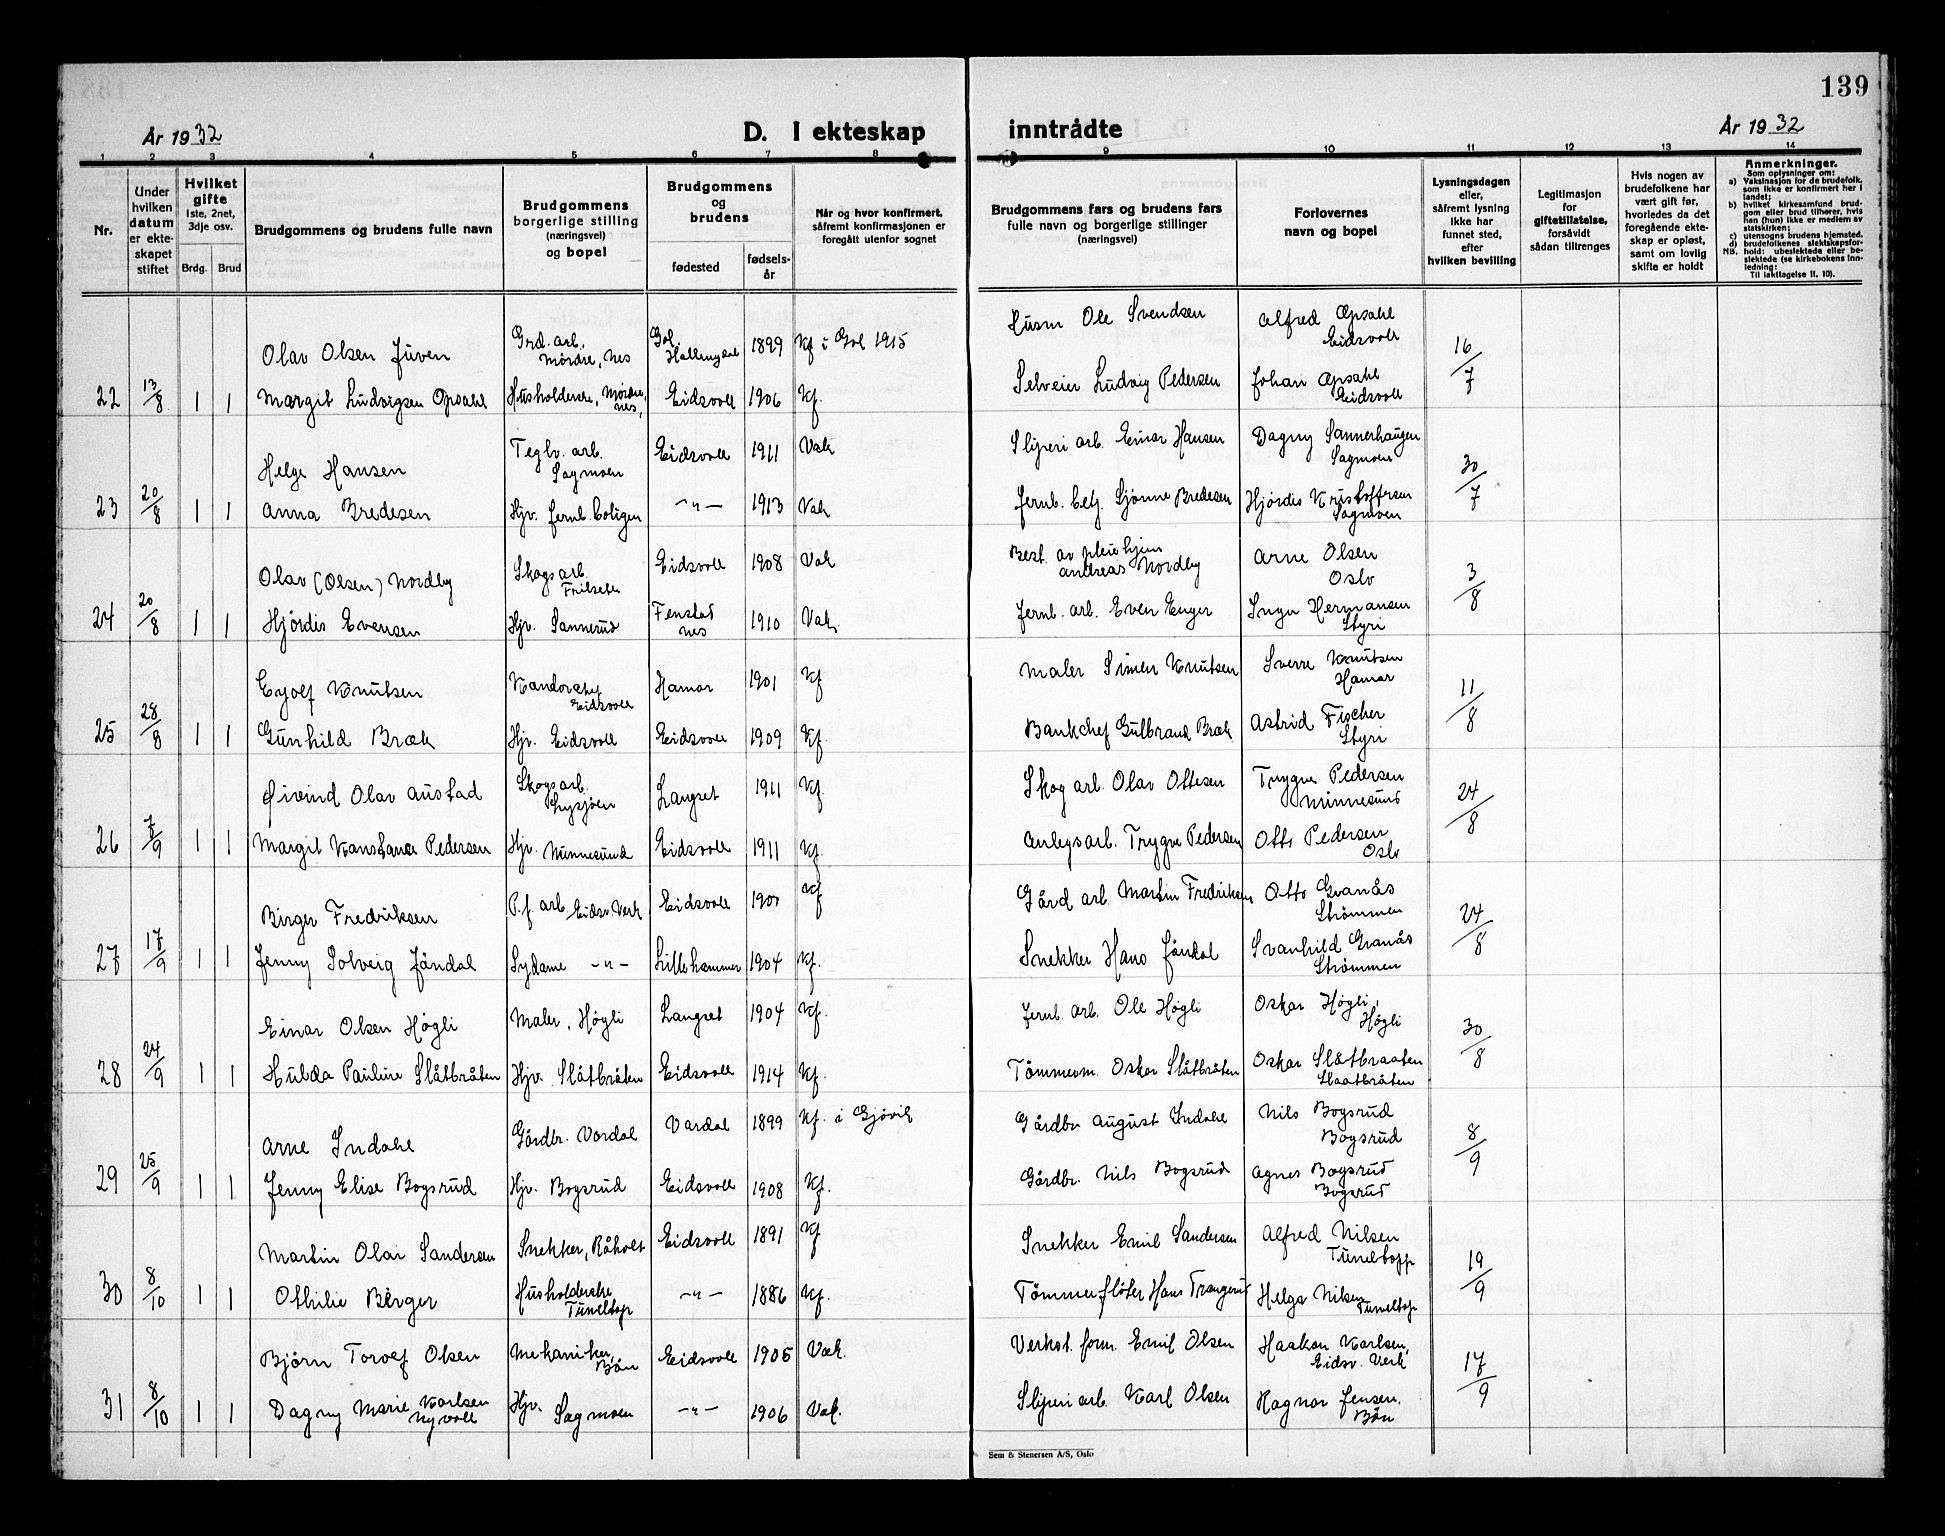 139
År 1932
D. I ekteskap inntrådte
År 1932
1 2 3 4 5 6 7 8 9 10 11 12 13 14
Nr.
Under hvilken datum er ekteskapet stiftet
Hvilket gifte 1ste, 2net, 3dje osv.
Brdg. Brud
Brudgommens og brudens fulle navn
Brudgommens og brudens borgerlige stilling (næringsvei) og bopel
Brudgommens og brudens
fødested
fødsels-år
Når og hvor konfirmert, såfremt konfirmasjonen er foregått utenfor sognet
Brudgommens fars og brudens fars fulle navn og borgerlige stillinger (næringsvei)
Forlovernes navn og bopel
Lysningsdagen eller, såfremt lysning ikke har funnet sted, efter hvilken bevilling
Legitimasjon for giftetillatelse, forsåvidt sådan tiltrenges
Hvis nogen av brudefolkene har vært gift før, hvorledes da det foregående ekteskap er opløst, samt om lovlig skifte er holdt
Anmerkninger.
Som oplysninger om:
a) Vaksinasjon for de brudefolk, som ikke er konfirmert her i landet;
b) hvilket kirkesamfund brudgom eller brud tilhører, hvis han (hun) ikke er medlem av statskirken;
c) utensogns brudens hjemsted.
d) brudefolkenes slektskapsforhold: ubeslektede eller beslektede (se kirkebokens innledning:
NB. Til iakttagelse II. 10).
Olav Olsen Juven Grd. arb. Mørdre, Nes Gol, Hallingdal 1899 Kf i Gol 1915 Husm Ole Svendsen Alfred Opsahl Eidsvoll 16/7
22 13/8 1 1 Margit Ludvigsen Opsahl Husholderske, Mørdre, Nes, Eidsvoll 1906 Kf. Selveier Ludvig Pedersen Johan Opsahl Eidsvoll
Helge Hansen Teglv. arb. Sagmoen Eidsvoll 1911 Vak Sliperi arb. Einar Hansen Dagny Sannerhaugen Sagmoen 30/7
23 20/8 1 1 Anna Bredesen Hjv. Jernb. boligen -"- 1913 Vak Jernb. betj. Bredesen Hjørdis Kristoffersen Sagmoen
Olav (Olsen) Nordby Skogsarb. Frilset Eidsvoll 1908 Vak Best. av pleiehjem Andreas Nordby Arne Olsen Oslo 3/8
24 20/8 1 1 Hjørdis Evensen Hjv. Sannerud Fenstad Nes 1910 Vak. Jernb. arb. Even Enger Hermansen Styri
Eyolf Knutsen Eidsvoll Hamar 1901 Kf Maler Simen Knutsen Sverre Knutsen Hamar 11/8
25 28/8 1 1 Gunhild Bræk Hjv. Eidsvoll Eidsvoll 1909 Kf. Bankchef Gulbrand Bræk Astrid Fischer Styri
Øivind Olav Austad Skogsarb. Lysjøen Langset 1911 Kf Skog arb. Olav Ottesen Trygve Pedersen Minnesund 24/8
26 7/9 1 1 Margit Konstance Pedersen Hjv. Minnesund Eidsvoll 1911 Kf. Anlegsarb. Trygve Pedersen Otto Pedersen Oslo
Birger Fredriksen P.f. arb. Eidsv. Verk Eidsvoll Kf Gård arb. Martin Fredriksen Otto Granås Strømmen 24/8
27 17/9 1 1 Jenny Solveig Jøndal Sydame -"- Lillehammer 1904 Kf. Snekker Hans Jøndal Svanhild Granås Strømmen
Einar Olsen Høgli Maler, Høgli Langset 1904 Kf. Jernb. arb. Ole Høgli Oskar Høgli, Høgli 30/8
28 24/9 1 1 Hulda Pauline Slåtbråten Hjv. Slåtbråten Eidsvoll 1914 Kf. Tømmerm. Oskar Slåtbråten Oskar Slåtbraaten Slaatbråten
Arne Indahl Gårdbr. Vardal Vardal 1899 Kf. i Gjøvik Gårdbr August Indahl Nils Bogsrud Bogsrud 8/9
29 25/9 1 1 Jenny Elise Bogsrud Hjv. Bogsrud Eidsvoll 1908 Kf. Gårdbr. Nils Bogsrud Agnes Bogsrud Bogsrud
Martin Olai Sandersen Snekker, Råholt Eidsvoll 1891 Kf Snekker Emil Sandersen Alfred Nilsen Tuneltopp 19/9
30 8/10 1 1 Othilie Berger Husholderske Tuneltop -"- 1886 Kf. Tømmerfløter Hans Trangerud Helga Nilsen Tuneltop
Bjørn Torolf Olsen Mekaniker, Bøn Eidsvoll 1905 Vak. Verkst. form. Emil Olsen Haakon Karlsen, Eidsv. Verk 17/9
31 8/10 1 1 Dagny Marie Karlsen Nyvoll Hjv. Sagmoen -"- 1906 Vak. Sliperi arb. Karl Olsen Ragnar Jensen, Bøn
Sem & Stenersen A/S, Oslo